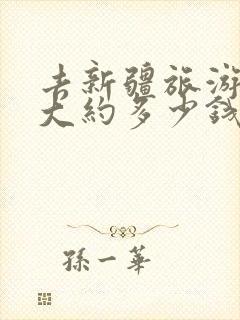 去新疆旅游
大约多少钱
孫一華